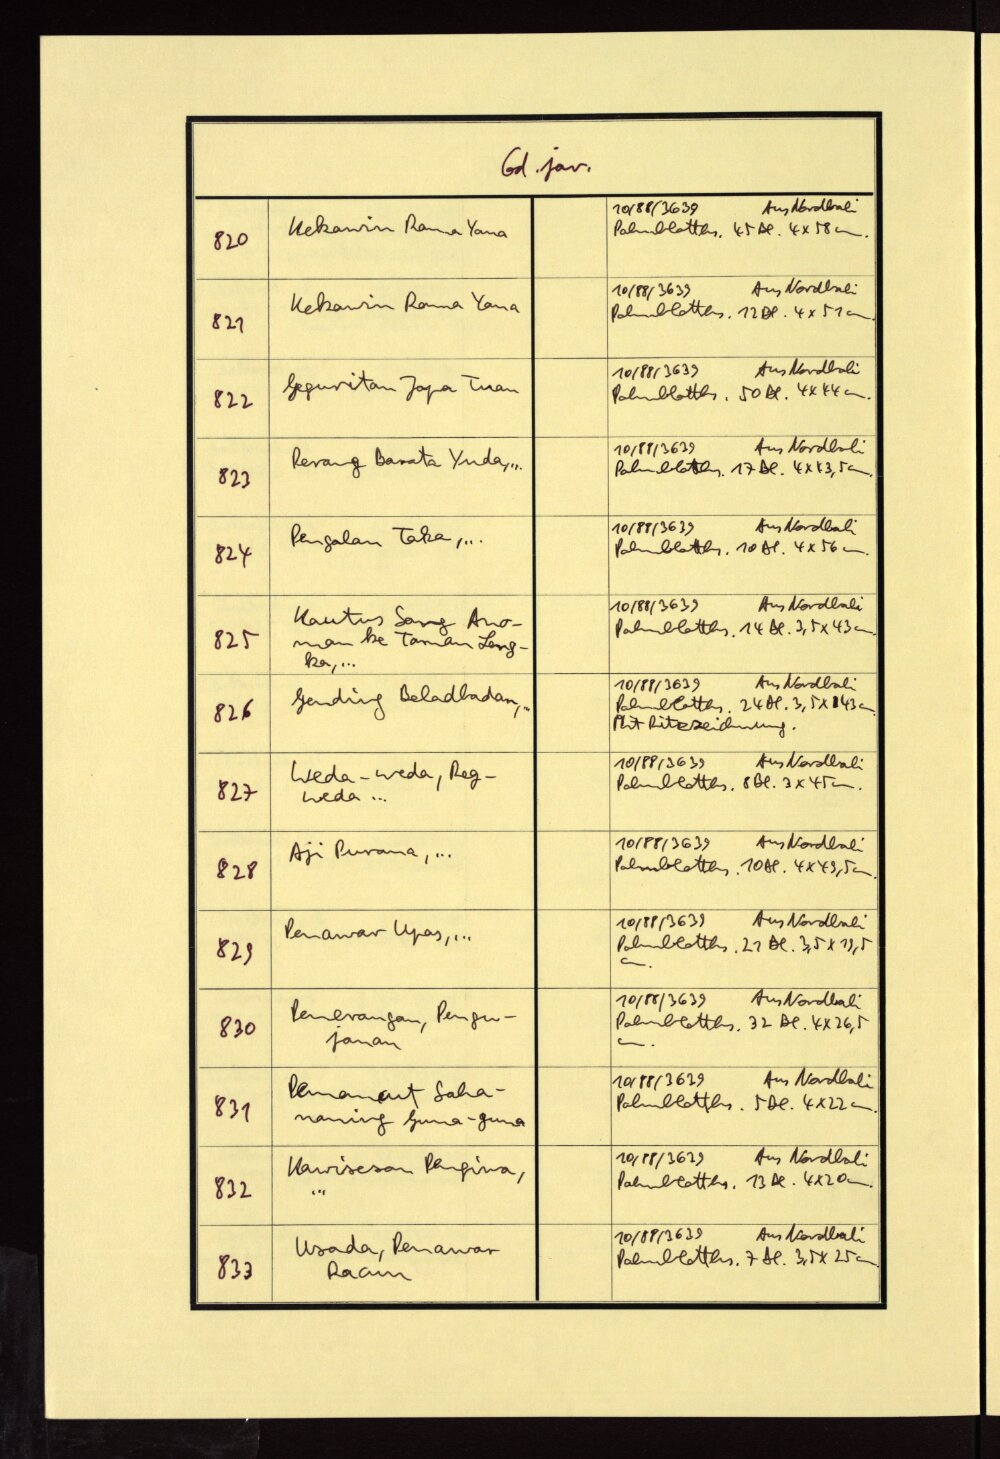 Cod. jav.
820
Kekawin Rama Yana
10/88/3639 Aus Nordbali
Palmblatths. 45 Bl. 4 x 58 cm.
821
Kekawin Rama Yana
10/88/3639 Aus Nordbali
Palmblatths. 12 Bl. 4 x 51 cm.
822
Geguritan Japa Tuan
10/88/3639 Aus Nordbali
Palmblatths. 50 Bl. 4 x 44 cm.
823
Perang Barata Yuda,...
10/88/3639 Aus Nordbali
Palmblatths. 17 Bl. 4 x 43,5 cm.
824
Pengalan Taka,...
10/88/3639 Aus Nordbali
Palmblatths. 10 Bl. 4 x 56 cm.
825
Kautus Sang Ano-
man ke Taman Leng-
ka,...
10/88/3639 Aus Nordbali
Palmblatths. 14 Bl. 3,5 x 43 cm.
826
Gending Beladbadan,..
10/88/3639 Aus Nordbali
Palmblatths. 24 Bl. 3,5 x 43 cm.
Mit Ritzzeichnung.
827
Weda-weda, Reg-
weda ...
10/88/3639 Aus Nordbali
Palmblatths. 8 Bl. 3 x 45 cm.
828
Aji Purana,...
10/88/3639 Aus Nordbali
Palmblatths. 10 Bl. 4 x 49,5 cm.
829
Penawar Upas,...
10/88/3639 Aus Nordbali
Palmblatths. 21 Bl. 3,5 x 19,5
cm.
830
Penerangan, Pengu-
janan
10/88/3639 Aus Nordbali
Palmblatths. 32 Bl. 4 x 26,5
cm.
831
Pemancut Saha-
naning Guna-guna
10/88/3639 Aus Nordbali
Palmblatths. 5 Bl. 4 x 22 cm.
832
Kawisesan Pengiwa,
...
10/88/3639 Aus Nordbali
Palmblatths. 13 Bl. 4 x 20 cm.
833
Usada, Penawar
Racun
10/88/3639 Aus Nordbali
Palmblatths. 7 Bl. 3,5 x 25 cm